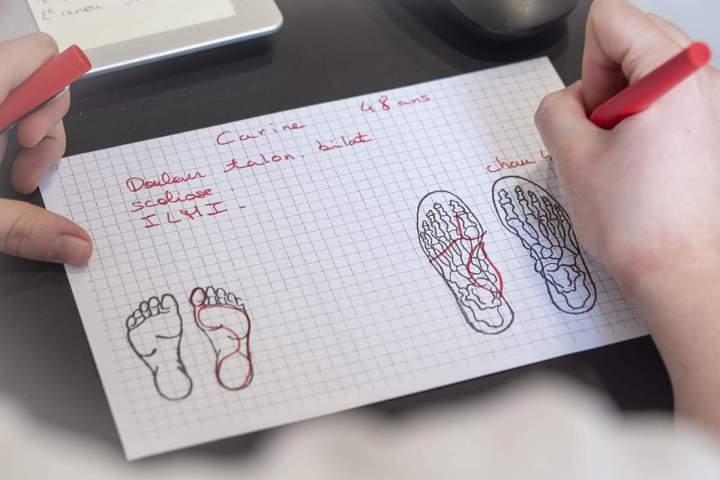 Carine 48 ans
Douleur talon. bilat
scoliose :
ILMI -
chau